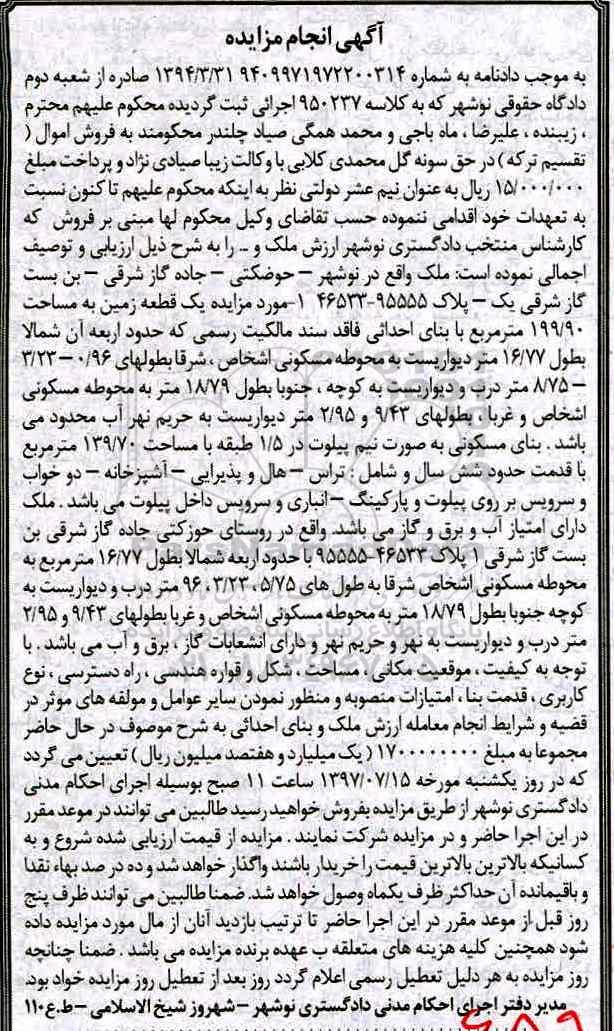 آگهی انجام مزایده
به موجب دادنامه به شماره ۹۴۰۹۹۷۱۹۷۲۲۰۰۳۱۴ ۱۳۹۴/۳/۳۱ صادره از شعبه دوم
دادگاه حقوقی نوشهر که به کلاسه ۹۵۰۲۳۷ اجرائی ثبت گردیده محکوم علیهم محترم
، زیبنده ، علیرضا ، ماه باجی و محمد همگی صیاد چلندر محکومند به فروش اموال (
تقسیم ترکه ) در حق سونه گل محمدی کلایی با وکالت زیبا صیادی نژاد و پرداخت مبلغ
۱۵/۰۰۰/۰۰۰ ریال به عنوان نیم عشر دولتی نظر به اینکه محکوم علیهم تا کنون نسبت
به تعهدات خود اقدامی ننموده حسب تقاضای وکیل محکوم لها مبنی بر فروش که
کارشناس منتخب دادگستری نوشهر ارزش ملک و ... را به شرح ذیل ارزیابی و توصیف
اجمالی نموده است: ملک واقع در نوشهر – حوضکتی – جاده گاز شرقی – بن بست
گاز شرقی یک – پلاک ۹۵۵۵۵-۴۶۵۳۳ ۱-مورد مزایده یک قطعه زمین به مساحت
۱۹۹/۹۰ مترمربع با بنای احداثی فاقد سند مالکیت رسمی که حدود اربعه آن شمالا
بطول ۱۶/۷۷ متر دیواریست به محوطه مسکونی اشخاص ، شرقا بطولهای ۰/۹۶ – ۳/۲۳
– ۸/۷۵ متر درب و دیواریست به کوچه ، جنوبا بطول ۱۸/۷۹ متر به محوطه مسکونی
اشخاص و غربا ، بطولهای ۹/۴۳ و ۲/۹۵ متر دیواریست به حریم نهر آب محدود می
باشد . بنای مسکونی به صورت نیم پیلوت در ۱/۵ طبقه با مساحت ۱۳۹/۷۰ مترمربع
با قدمت حدود شش سال و شامل : تراس – هال و پذیرایی – آشپزخانه – دو خواب
و سرویس بر روی پیلوت و پارکینگ – انباری و سرویس داخل پیلوت می باشد . ملک
دارای امتیاز آب و برق و گاز می باشد. واقع در روستای حوزکتی جاده گاز شرقی بن
بست گاز شرقی ۱ پلاک ۴۶۵۳۳-۹۵۵۵۵ با حدود اربعه شمالا بطول ۱۶/۷۷ مترمربع به
محوطه مسکونی اشخاص شرقا به طول های ۵/۷۵ ، ۳/۲۳ ، ۹۶ متر درب و دیواریست به
کوچه جنوبا بطول ۱۸/۷۹ متر به محوطه مسکونی اشخاص و غربا بطولهای ۹/۴۳ و ۲/۹۵
متر درب و دیواریست به نهر و حریم نهر و دارای انشعابات گاز ، برق و آب می باشد . با
توجه به کیفیت ، موقعیت مکانی ، مساحت ، شکل و قواره هندسی ، راه دسترسی ، نوع
کاربری ، قدمت بنا ، امتیازات منصوبه و منظور نمودن سایر عوامل و مولفه های موثر در
قضیه و شرایط انجام معامله ارزش ملک و بنای احداثی به شرح موصوف در حال حاضر
مجموعا به مبلغ ۱۷۰۰۰۰۰۰۰۰ ( یک میلیارد و هفتصد میلیون ریال ) تعیین می گردد
که در روز یکشنبه مورخه ۱۳۹۷/۰۷/۱۵ ساعت ۱۱ صبح بوسیله اجرای احکام مدنی
دادگستری نوشهر از طریق مزایده بفروش خواهید رسید طالبین می توانند در موعد مقرر
در این اجرا حاضر و در مزایده شرکت نمایند . مزایده از قیمت ارزیابی شده شروع و به
کسانیکه بالاترین بالاترین قیمت را خریدار باشند واگذار خواهد شد و ده در صد بهاء نقدا
و باقیمانده آن حداکثر ظرف یکماه وصول خواهد شد. ضمنا طالبین می توانند ظرف پنج
روز قبل از موعد مقرر در این اجرا حاضر تا ترتیب بازدید آنان از مال مورد مزایده داده
شود همچنین کلیه هزینه های متعلقه ب عهده برنده مزایده می باشد . ضمنا چنانچه
روز مزایده به هر دلیل تعطیل رسمی اعلام گردد روز بعد از تعطیل روز مزایده خواد بود.
مدیر دفتر اجرای احکام مدنی دادگستری نوشهر – شهروز شیخ الاسلامی – ط.ع ۱۱۰